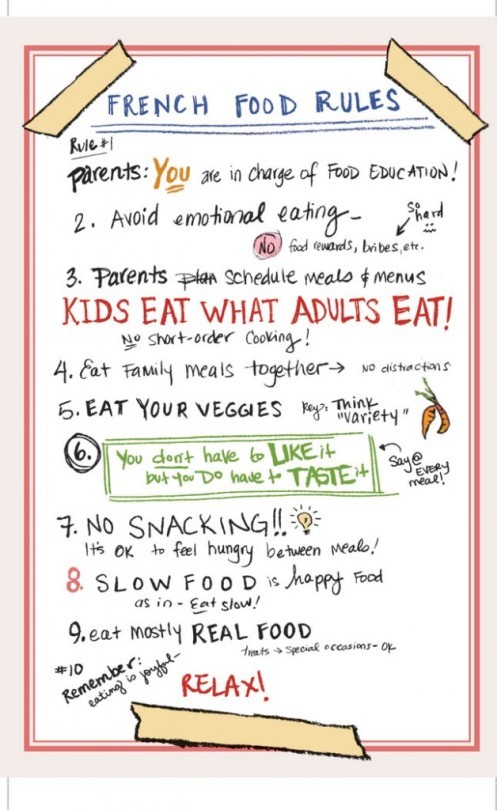 FRENCH FOOD RULES
Rule #1
Parents: You are in charge of FOOD EDUCATION!
2. Avoid emotional eating-
so hard
NO food rewards, bribes, etc.
3. Parents plan schedule meals & menus
KIDS EAT WHAT ADULTS EAT!
No short-order cooking!
4. Eat Family meals together→ NO distractions
5. EAT YOUR VEGGIES Key: Think
"variety"
6. You don't have to LIKE it
but you DO have to TASTE it
Say @
EVERY
meal!
7. NO SNACKING!!
It's OK to feel hungry between meals!
8. SLOW FOOD is happy Food
as in - Eat slow!
9. eat mostly REAL FOOD
treats → special occasions - OK
#10
Remember:
eating is joyful-
RELAX!